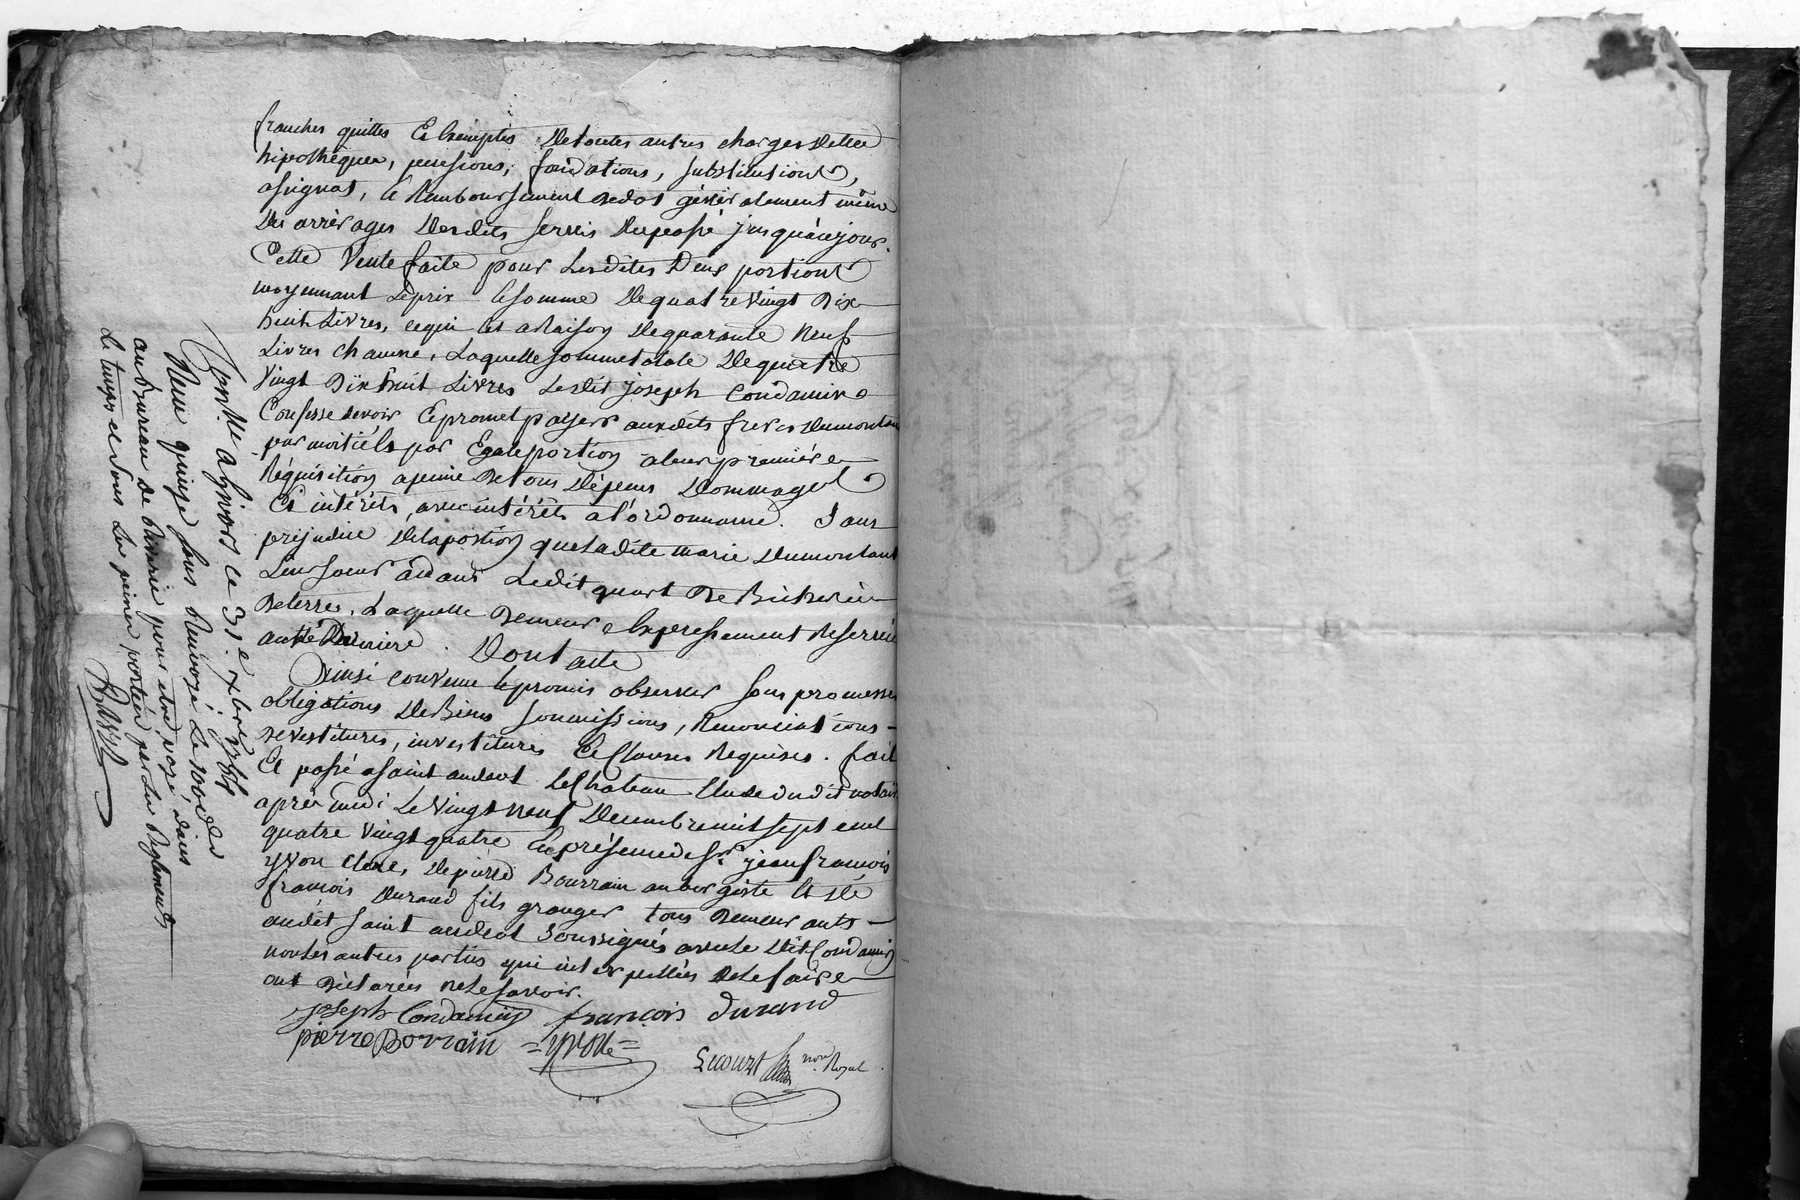 franches quittes Et Exemptes De toutes autres charges Dettes
hipotheques, pensions, fondations, substitutions,
asignat, Et Remboursement De dot généralement même
Des arrérages Desdits servis Du passé jusqu'à ce jour.
Cette Vente faite pour Lesdites Deux portions
moyennant Le prix Et somme De quatre Vingt Dix
huit Livres, ce qui Est a Raison De quarante Neuf
Livres Chacune, Laquelle somme totale De quatre
Vingt Dix huit Livres Ledit joseph Condamine
Confesse devoir Et promet payer auxdits freres Dumontan
par moitié Et par Egale portion a leur première
Réquisition a peine De tous Dépens Dommages
Et intérêts, avec intérêts a l'ordonnance. Sans
prejudice De la portion que Ladite marie Dumontant
Leur soeur a dans Ledit quart De
De terres, Laquelle Demeure Expressement Reservée
a cette Derniere. Dont acte
Ainsi convenu Et promis observer sous promesses
obligations De Biens soumissions, Renonciations
devestitures, investitures Et Clauses Requises. fait
Et passé a saint andeol Le Chateau Etude dudit notaire
après midi Le Vingt neuf Decembre mil sept cent
quatre Vingt quatre En présence de Sr. jean françois
yvon Clerc, De pierre Bourrain aubergiste Et De
francois Durand fils granger tous Demeurants
audit saint andeol soussignés avec le Dit Condamin
non Les autres parties qui interpellées De Le faire
ont Déclarées ne Le savoir.
joseph Condamin françois Durand
pierre Borrain = yvon =
Lecourt nore Royal
Controllé a Givors ce 31e xbre 1784
Reçu quinze sous Renvoyé Le 100e den
au Bureau de pour etre payé dans
Le temps et sous Les peines portées par Les Reglements